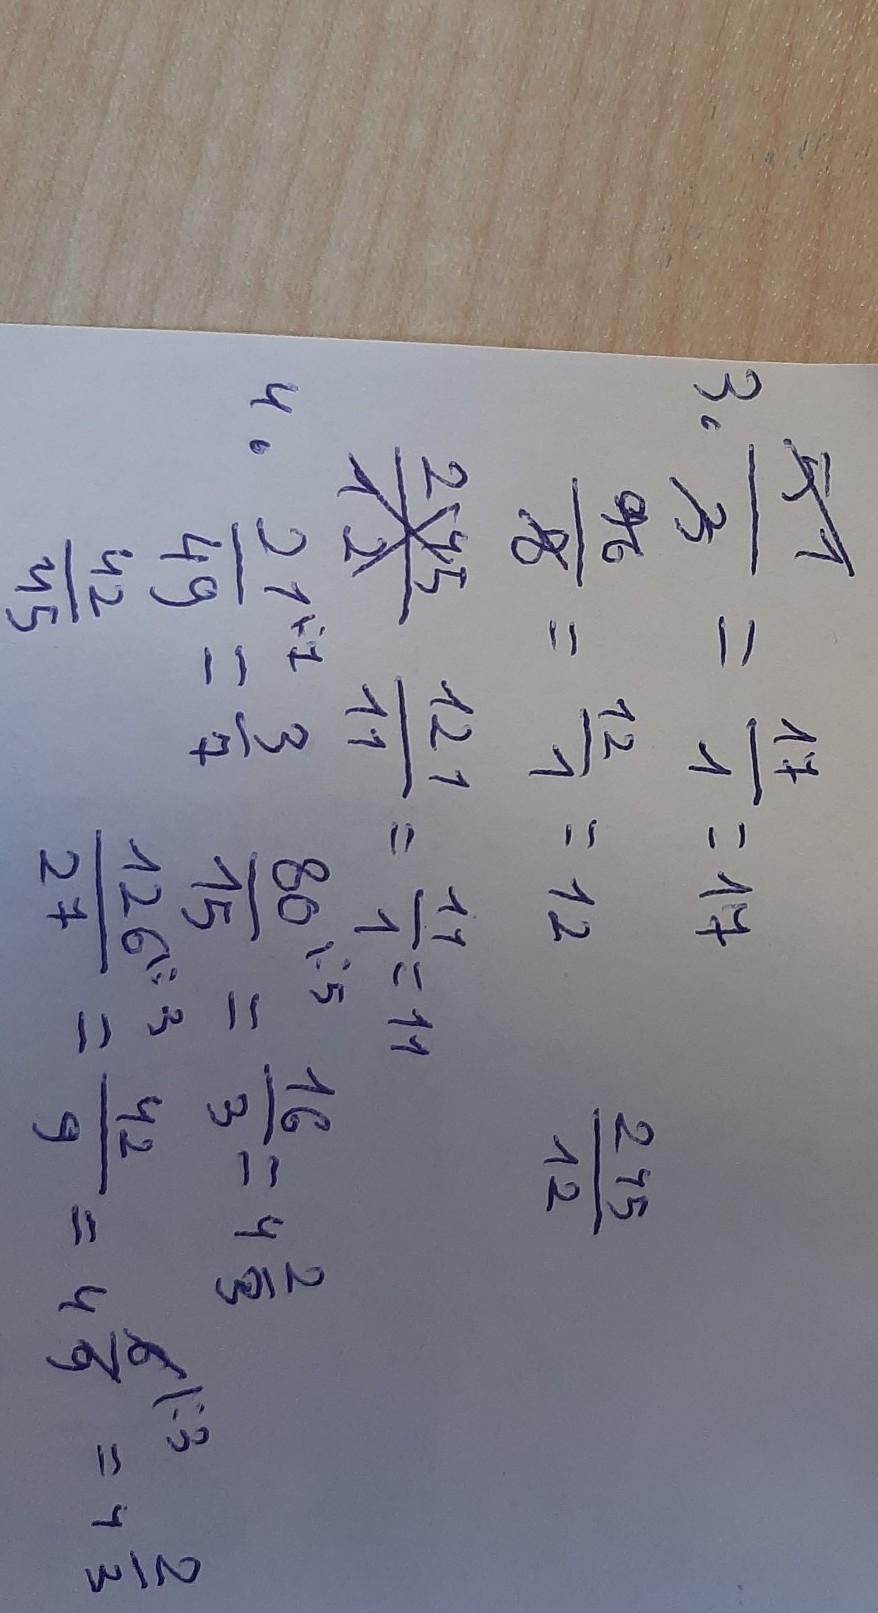 3. 51/3 = 17/1 = 17
96/8 = 12/1 = 12
245/12
121/11 = 11/1 = 11
245/12
4. 21/49 |:7 = 3/7
80/15 |:5 = 16/3 = 4 2/3
42/45
126/27 |:3 = 42/9 = 4 6/9 |:3 = 4 2/3